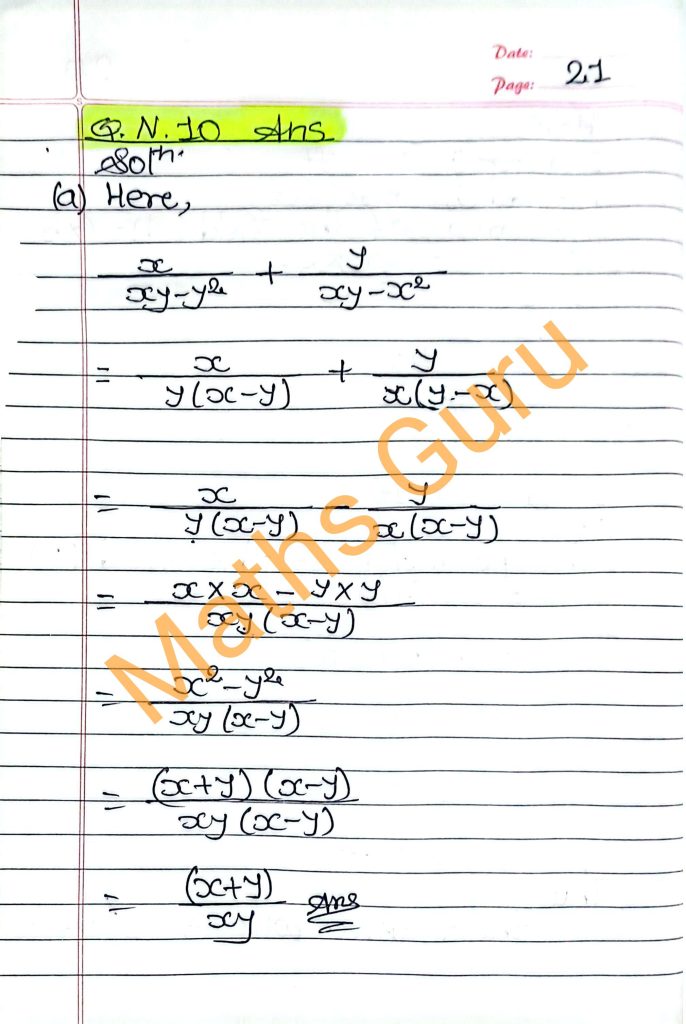 Date:
Page: 21
Q.N.10 Ans
Solⁿ.
(a) Here,
x/(xy-y²) + y/(xy-x²)
= x/(y(x-y)) + y/(x(y-x))
= x/(y(x-y)) - y/(x(x-y))
= (x×x - y×y)/(xy(x-y))
= (x²-y²)/(xy(x-y))
= ((x+y)(x-y))/(xy(x-y))
= (x+y)/xy Ans
Maths Guru